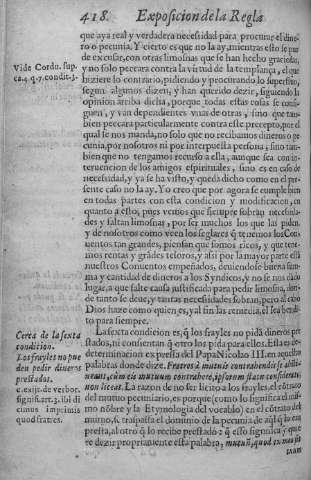 418. Exposicion de la Regla
que aya real y verdadera necessidad para procurar el dine-
ro o pecunia. Y cierto es que no la ay, mientras esto se pue
de escusar, con otras limosnas que se han hecho graciosas,
Vide Cordu. sup.
y no solo peccara contra la virtud de la templança, el que
ca.4.q.7.condit.3.
hiziere lo contrario, pidiendo y procurando lo superfluo,
segun algunos dizen, y han querido dezir, siguiendo la
opinion arriba dicha, porque todas estas cosas se consi-
guen, y van dependientes vnas de otras, sino que tam-
bien peccara particularmente contra este precepto, por el
qual se nos manda, no solo que no recibamos dineros o pe
cunia, por nosotros ni por interpuesta persona, sino tam-
bien que no tengamos recurso a ella, aunque sea con in-
teruencion de los amigos espirituales, sino es en caso de
necessidad, y ya se ha visto, y queda dicho como en el pre-
sente caso no la ay. Yo creo que por agora se cumple bien
en todas partes con esta condicion y modificacion, en
quanto a esto, pues vemos que siempre sobran necessida-
des y faltan limosnas, por ser muchos los que las piden.
y de nosotros como veen los seglares q̃ tenemos los Con-
uentos tan grandes, piensan que somos ricos, y que tene-
mos rentas y grãdes tesoros, y assi por la mayor parte estã
nuestros Conuentos empeñados, deuiendose buena sum-
ma y cantidad de dineros a los Syndicos, y no se nos da
lugar, a que falte causa justificada para pedir limosna, don-
de tanto se deue, y tantas necessidades sobran, pero al cabo
Dios haze como quien es, y al fin las remedia, el sea bendi-
to para siempre.
Cerca de la sexta
condicion.
La sexta condicion es, q̃ los frayles no pidã dineros pre
Los frayles no pue
stados, ni consientan q̃ otro los pida para ellos. Esta es de-
den pedir dineros
terminacion expressa del Papa Nicolao III. en aquellas
prestados.
palabras donde dize. Fratres à mutuis contrahendis se abstineant,
cum eis mutuum contrahere, ipsorum statu considerato,
non liceat. La razon de no ser licito a los frayles, el cõtrato
del mutuo pecuniario, es porque (como lo significa el mis-
cimus imprimis
mo nõbre y la Etymologia del vocablo) en el cõtrato del
quod fratres.
mutuo, se traspassa el dominio de la pecunia de aql q̃ lo em
presta, al otro q̃ lo recibe prestado: q̃ esto significa y quie
re dezir propriamente esta palabra, mutuũ, quod ex meo fit
tuum